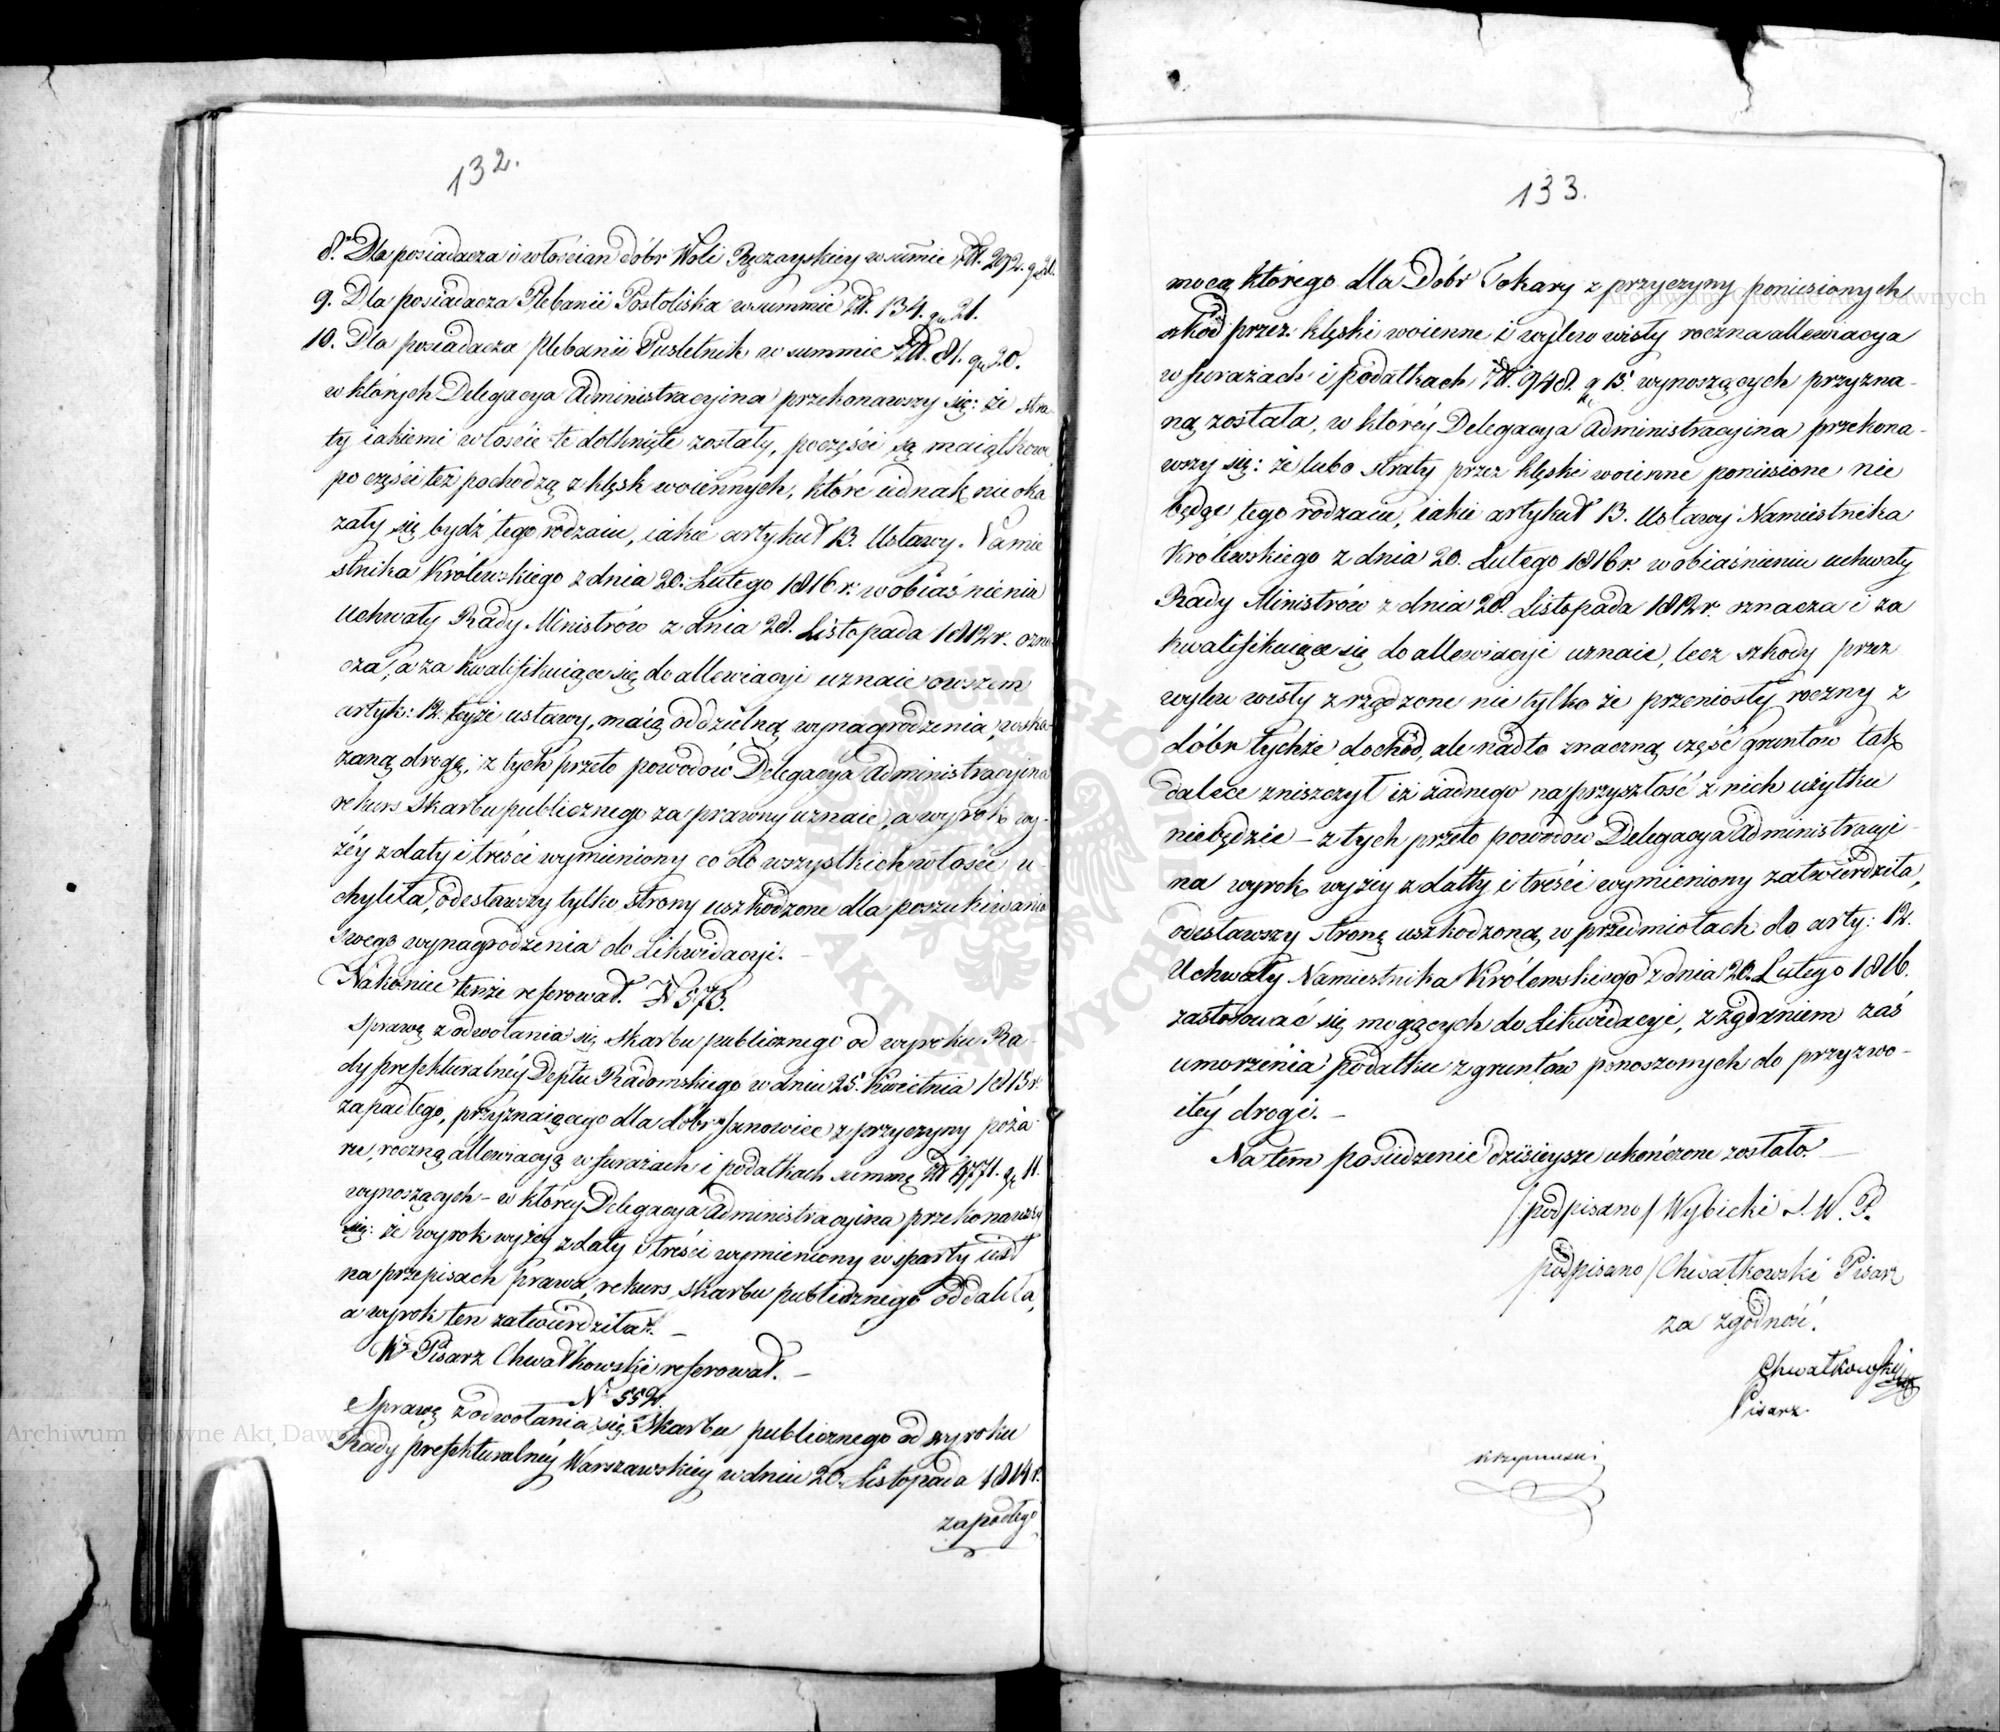 132.
8. Dla posiadacza i włościan dóbr Woli Ręczayskiey w summie Zł. 292. gr 21.
9. Dla posiadacza Plebanii Postoliska w summie Zł. 134. gr 21.
10. Dla posiadacza Plebanii Pustelnik w summie Zł. 81. gr 20.
w których Delegacya Administracyina przekonawszy się: że stra-
ty iakiemi włoście te dotknięte zostały, poczęści są maiątkowe
po części też pochodzą z klęsk woiennych, które iednak nie oka
zały się bydź tego rodzaiu, iakie artykuł 13. Ustawy Namie
stnika Królewskiego z dnia 20. Lutego 1816 r. w obiaśnieniu
Uchwały Rady Ministrów z dnia 28. Listopada 1812 r. ozna-
cza, a za kwalifikuiące się do allewiacyi uznaie owszem
artyk: 12. teyże ustawy, maią oddzielną wynagrodzenia, wska-
zaną drogę, z tych przeto powodów Delegacya Administracyina
rekurs Skarbu publicznego za prawny uznaie, a wyrok wy-
żéy z daty i treści wymieniony co do wszystkich włości u-
chyliła, odesławszy tylko strony uszkodzone dla poszukiwania
swego wynagrodzenia do Likwidacyi. —
Nakoniec tenże referował. N 573.
Sprawę z odwołania się Skarbu publicznego od wyroku Ra-
dy prefekturalnéy Deptu Radomskiego w dniu 25. Kwietnia 1815 r.
zapadłego, przyznaiącego dla dóbr Janowiec z przyczyny poża-
ru, roczną allewiacyą w furażach i podatkach summę Zł 4771. gr 11.
wynoszących – w któréy Delegacya Administracyina przekonawszy
się: że wyrok wyżéy z daty i treści wymieniony wsparty iest
na przepisach prawa, rekurs Skarbu publicznego oddaliła,
a wyrok ten zatwierdziła. —
Wz Pisarz Chwałkowski referował. —
N 552.
Sprawę z odwołania się Skarbu publicznego od wyroku
Rady prefekturalnéy Warszawskiéy w dniu 20. Listopada 1814 r.
zapadłego
133.
mocą którego dla Dóbr Tokary z przyczyny poniesionych
szkód przez klęski woienne i wylew wisły roczna allewiacya
w furażach i podatkach Zł. 948. gr 15 wynoszących przyzna-
ną została, w któréy Delegacya Administracyina przekona-
wszy się: że lubo straty przez klęski woienne poniesione nie
będąc tego rodzaiu, iakie artykuł 13. Ustawy Namiestnika
Królewskiego z dnia 20. Lutego 1816 r. w obiaśnieniu uchwały
Rady Ministrów z dnia 28. Listopada 1812 r. oznacza i za
kwalifikuiące się do allewiacyi uznaie, lecz szkody przez
wylew wisły zrządzone nie tylko że przeniosły roczny z
dóbr tychże dochód, ale nadto znaczną część gruntów tak
dalece zniszczył iż żadnego na przyszłość z nich użytku
niebędzie – z tych przeto powodów Delegacya Administracyi-
na wyrok wyżéy z datty i treści wymieniony zatwierdziła,
odesławszy stronę uszkodzoną w przedmiotach do arty: 12.
Uchwały Namiestnika Królewskiego z dnia 20. Lutego 1816.
zastosować się mogących do Likwidacyi, z żądaniem zaś
umorzenia podatku z gruntów ponoszonych do przyzwo-
itéy drogi. —
Na tem posiedzenie dzisieysze ukończone zostało. —
/podpisano/ Wybicki S. W. P.
podpisano/ Chwałkowski Pisarz
za zgodność.
Chwałkowski
Pisarz
Archiwum Główne Akt Dawnych
Archiwum Główne Akt Dawnych
ARCHIWUM GŁÓWNE AKT DAWNYCH